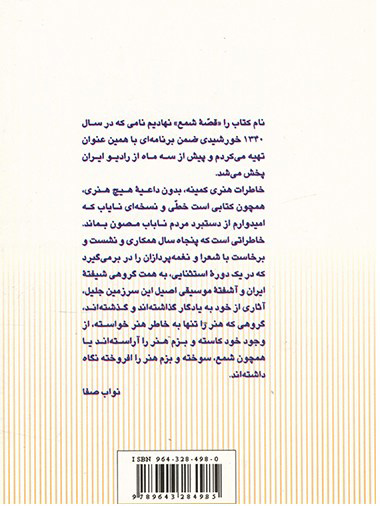 نام کتاب را «قصّهٔ شمع» نهادیم نامی که در سال
۱۳۳۰ خورشیدی ضمن برنامه‌ای با همین عنوان
تهیه می‌کردم و پیش از سه ماه از رادیو ایران
پخش می‌شد.
خاطرات هنری کمینه، بدون داعیهٔ هیچ هنری،
همچون کتابی است خطّی و نسخه‌ای نایاب که
امیدوارم از دستبرد مردم ناباب مصون بماند.
خاطراتی است که پنجاه سال همکاری و نشست و
برخاست با شعرا و نغمه‌پردازان را در برمی‌گیرد
که در یک دورهٔ استثنایی، به همت گروهی شیفتهٔ
ایران و آشفتهٔ موسیقی اصیل این سرزمین جلیل،
آثاری از خود به یادگار گذاشته‌اند و گذشته‌اند،
گروهی که هنر را تنها به خاطر هنر خواسته، از
وجود خود کاسته و بزم هنر را آراسته‌اند یا
همچون شمع، سوخته و بزم هنر را افروخته نگاه
داشته‌اند.
نواب صفا
ISBN 964-328-498-0
9789643284985